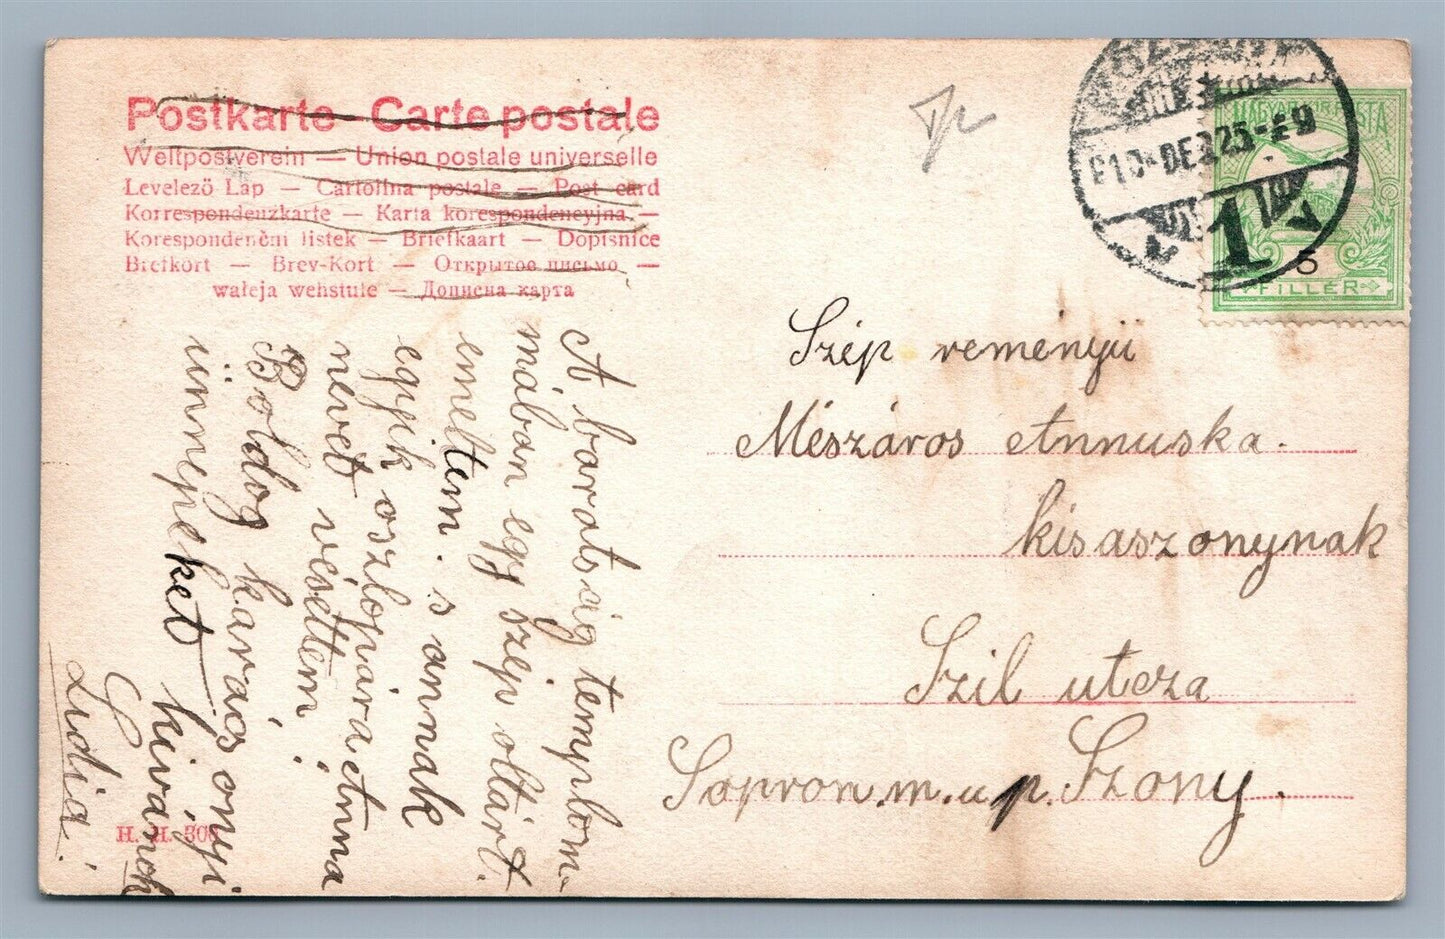 Postkarte – Carte postale
Weltpostverein — Union postale universelle
Levelező Lap — Cartolina postale — Post card
Korrespondenzkarte — Karta korespondencyjna —
Korespondenční listek — Briefkaart — Dopisnice
Brefkort — Brev-Kort — Открытое письмо —
wateja wehstule — Дописна карта
910 DEZ 25
1
5
FILLÉR
Szép reményü
Mészáros Annuska.
kisaszonynak
Szil utcza
Sopron.m.u p. Szony.
A baratság templom-
mában egy szép oltárt.
emeltem. s annak
egyik oszlopára Anna
nevet véséttem!
Boldog karácsonyi
ünnepeket kivánok
Lidia!
H. H. 306